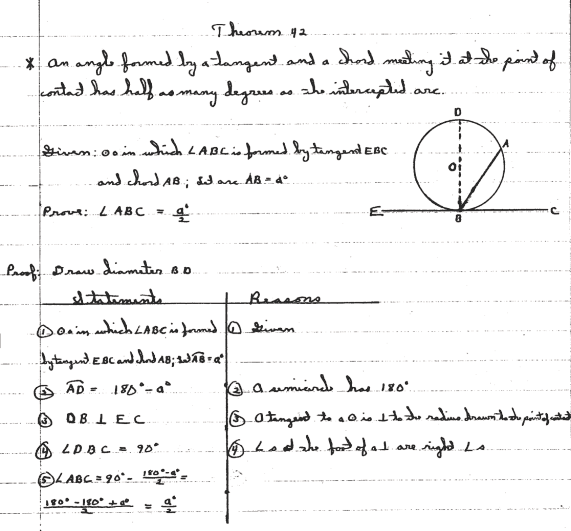 Theorem 42
* An angle formed by a tangent and a chord meeting it at the point of
contact has half as many degrees as the intercepted arc.
Given: ⊙O in which ∠ABC is formed by tangent EBC
and chord AB; let arc AB = a°
Prove: ∠ABC = a°/2
D
A
O
E
B
C
Proof: Draw diameter BD
Statements
Reasons
① ⊙O in which ∠ABC is formed
by tangent EBC and chord AB; let AB = a°
① Given
② AD = 180° - a°
② A semicircle has 180°
③ OB ⊥ EC
③ A tangent to a ⊙ is ⊥ to the radius drawn to the point of contact
④ ∠DBC = 90°
④ ∠s at the foot of a ⊥ are right ∠s
⑤ ∠ABC = 90° - (180° - a°)/2 =
(180° - 180° + a°)/2 = a°/2